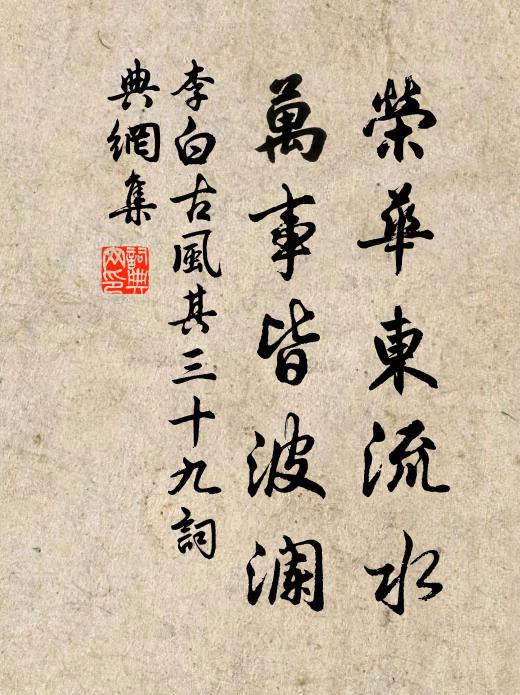 榮華東流水
萬事皆波瀾
李白古風其三十九詞
典網集
詞典網印